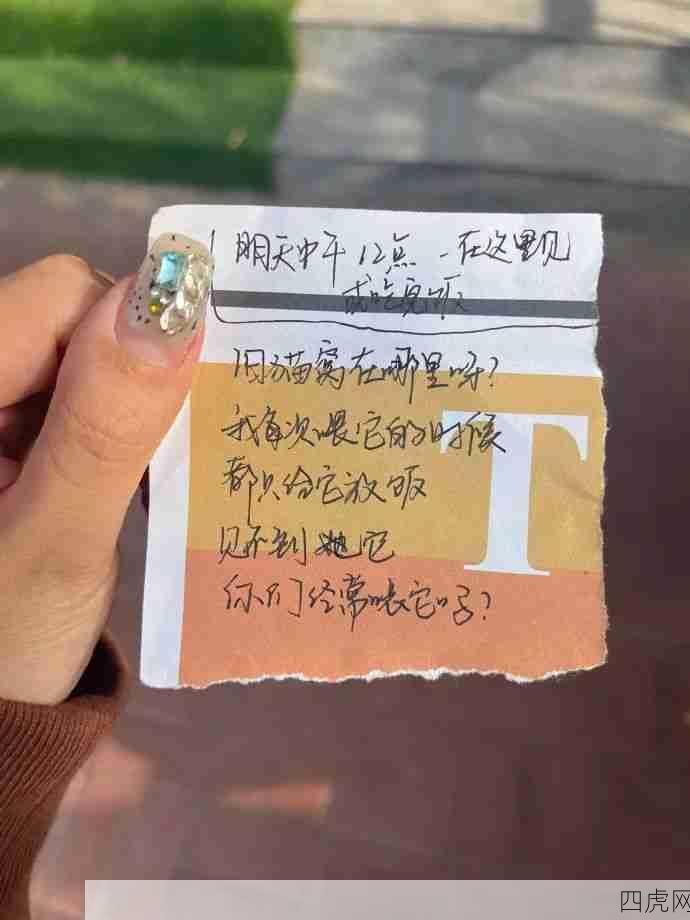 明天中午12点 - 在这里见
或吃完饭
猫窝在哪里呀?
我每次喂它的时候
都只给它放饭
见不到它
你们经常喂它吗?
T
四虎网